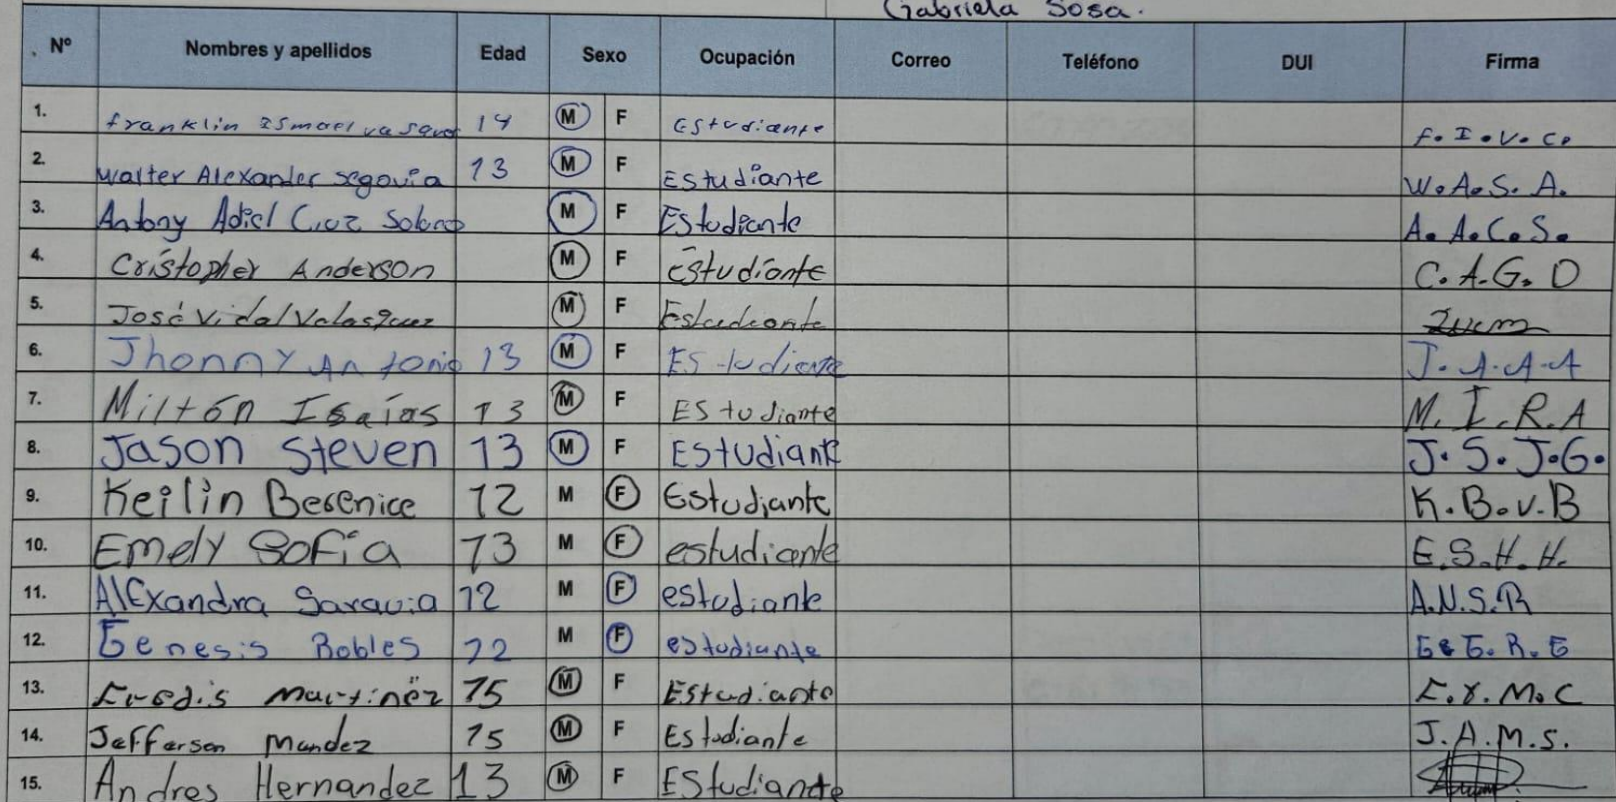 Gabriela Sosa.
Nº Nombres y apellidos Edad Sexo Ocupación Correo Teléfono DUI Firma
1. franklin Ismael 14 M F Estudiante F. I. V. C.
2. Walter Alexander Segovia 13 M F Estudiante W. A. S. A.
3. Antony Adiel Cruz M F Estudiante A. A. C. S.
4. Cristopher Anderson M F estudiante C. A. G. D
5. José Vidal Velasquez M F Estudiante
6. Jhonny Antonio 13 M F Estudiante J. A. A. A
7. Miltón Isaías 13 M F Estudiante M. I. R. A
8. Jason Steven 13 M F Estudiante J. S. J. G.
9. Keilin Berenice 12 M F Estudiante K. B. V. B
10. Emely Sofía 13 M F estudiante E. S. H. H.
11. Alexandra Saravia 12 M F estudiante A. N. S. R
12. Genesis Robles 12 M F estudiante G. R. G
13. Martinez 15 M F Estudiante M. C
14. Jefferson Mendez 15 M F Estudiante J. A. M. S.
15. Andres Hernandez 13 M F EStudiante